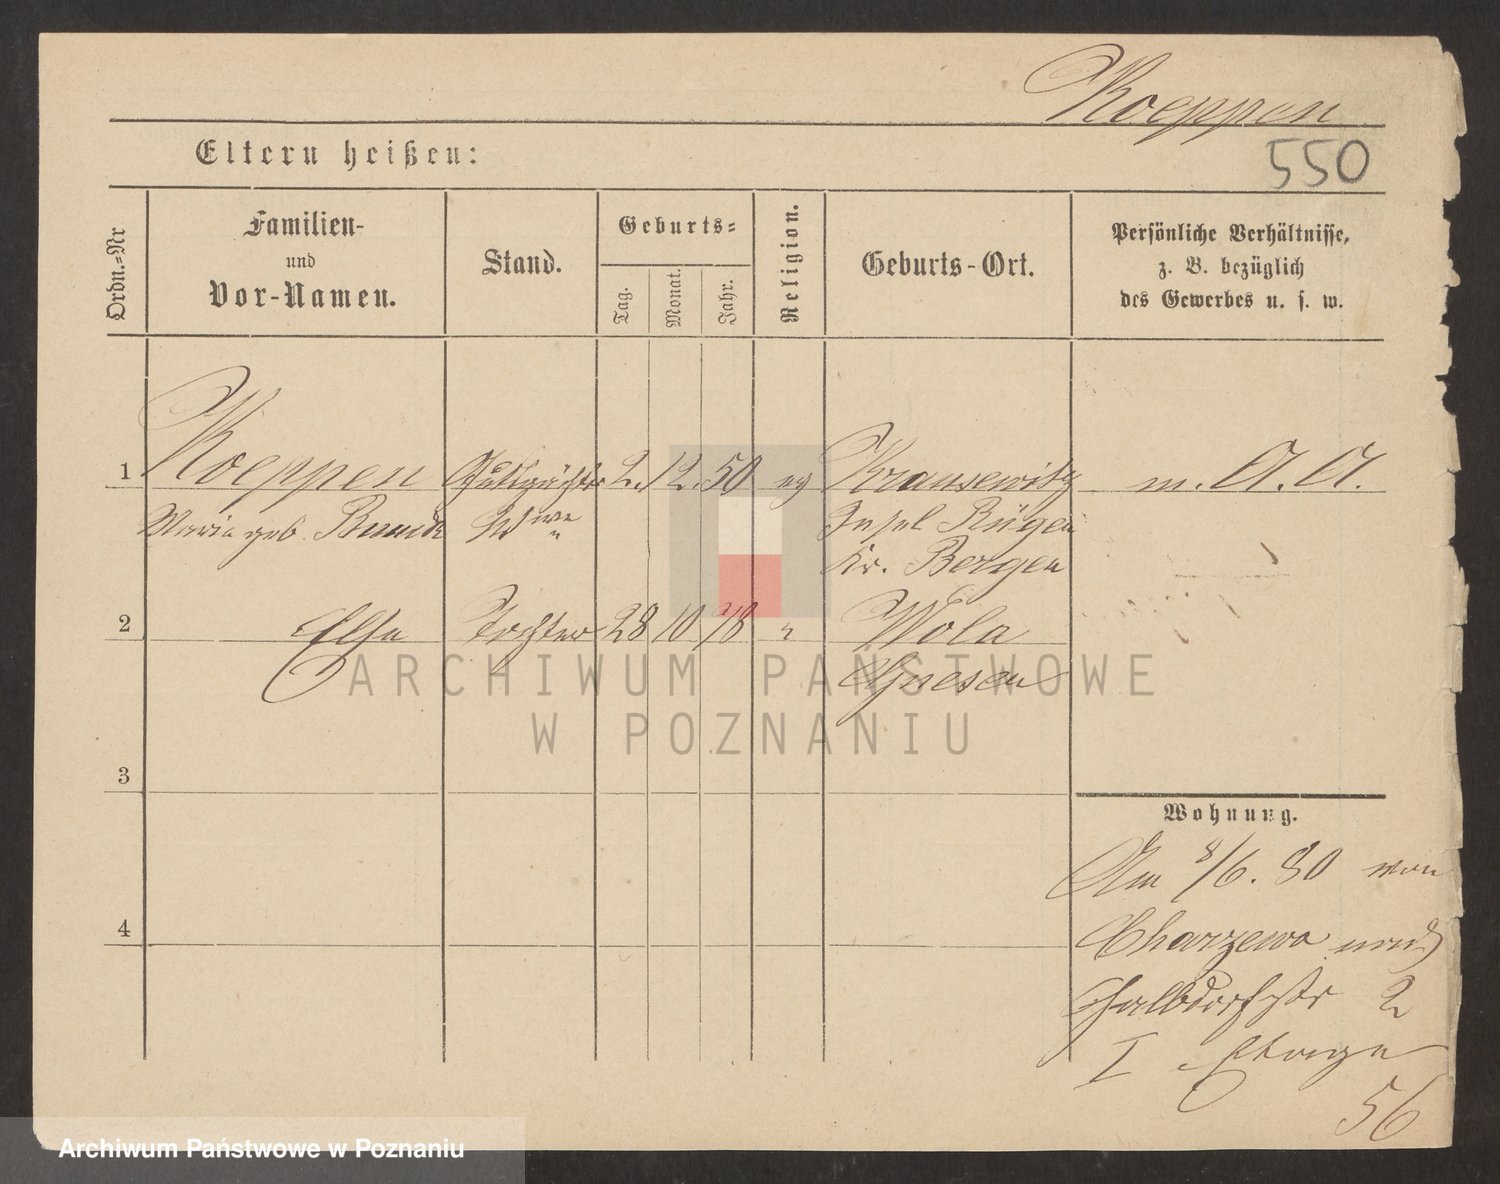 Koeppen
Eltern heißen:
550
Ordn.-Nr
Familien-
und
Vor-Namen.
Stand.
Geburts-
Tag.
Monat.
Jahr.
Religion.
Geburts-Ort.
Persönliche Verhältnisse,
z. B. bezüglich
des Gewerbes u. s. w.
1 Koeppen Gutspächter 2. 12. 50 ev Kransewitz m. A. A.
Maria geb. Wwe Insel Rügen
Kr. Bergen
2 Elsa Tochter 28 10 78 " Wola
Gnesen
ARCHIWUM PAŃSTWOWE
W POZNANIU
3
Wohnung.
Am 8/6. 80 von
4
Charzewo nach
Halbdorfstr 2
I Etage
56
Archiwum Państwowe w Poznaniu